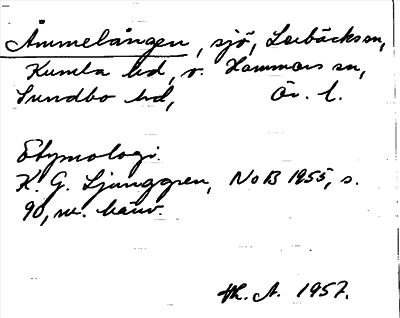 Åmmelången, sjö, Lerbäcks sn,
Kumla hd, v. Hammars sn,
Sundbo hd, Ör. l.
Etymologi.
K. G. Ljunggren, NoB 1955, s.
90, m. hänv.
Th. A. 1957.